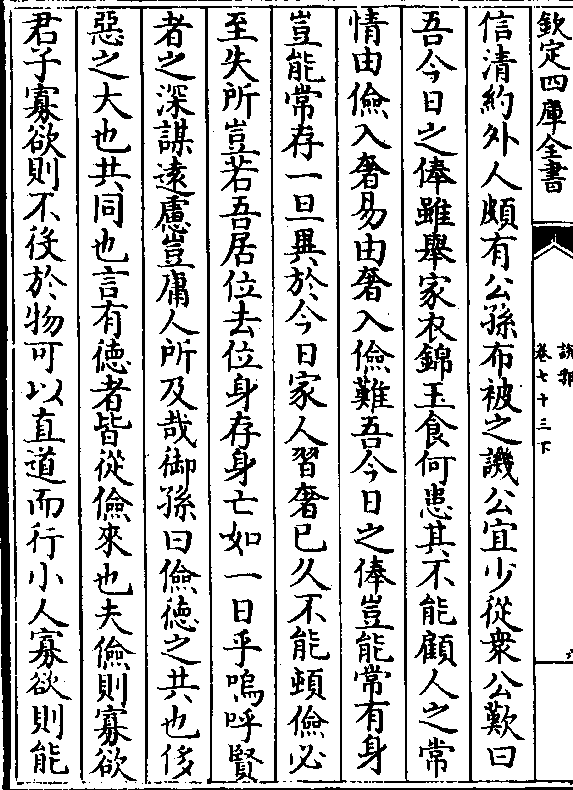 欽定四庫全書
說郛
卷七十三下
六
信清約外人頗有公孫布被之譏公宜少從衆公歎曰
吾今日之俸雖舉家衣錦玉食何患其不能顧人之常
情由儉入奢易由奢入儉難吾今日之俸豈能常有身
豈能常存一旦異於今日家人習奢已久不能頓儉必
至失所豈若吾居位去位身存身亡如一日乎嗚呼賢
者之深謀遠慮豈庸人所及哉御孫曰儉德之共也侈
惡之大也共同也言有德者皆從儉來也夫儉則寡欲
君子寡欲則不役於物可以直道而行小人寡欲則能